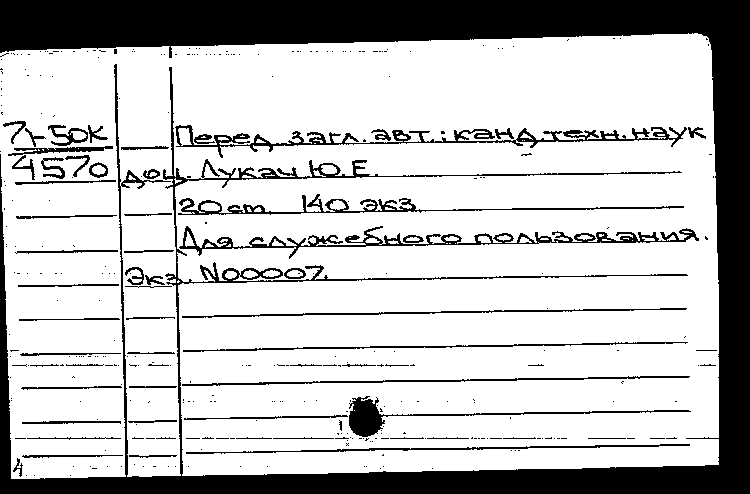 71-50К Перед загл. авт.: канд.техн.наук
4570 доц. Лукач Ю.Е.
20 см 140 экз
Для служебного пользования.
Экз. N00007.
4